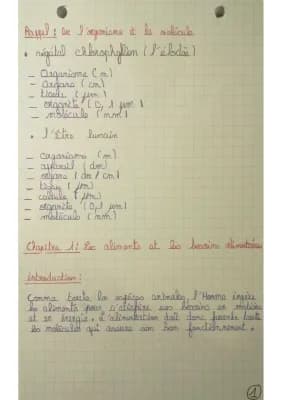 Rappel : De l'organisme à la molécule
• végétal chlorophyllien (l'élodée)
– Organisme (m)
– Organe (cm)
– tissu (µm)
– organite (0,1 µm)
– molécule (nm)
• l'Etre humain
– organisme (m)
– appareil (dm)
– organe (dm / cm)
– tissu (µm)
– cellule (µm)
– organite (0,1 µm)
– molécule (nm)
Chapitre 1 : Les aliments et les besoins alimentaires
Introduction :
Comme toute les espèces animales, l'Homme ingère
les aliments pour satisfaire ses besoins en matière
et en énergie. L'alimentation doit donc fournir toute
les molécules qui assure son bon fonctionnement.
1